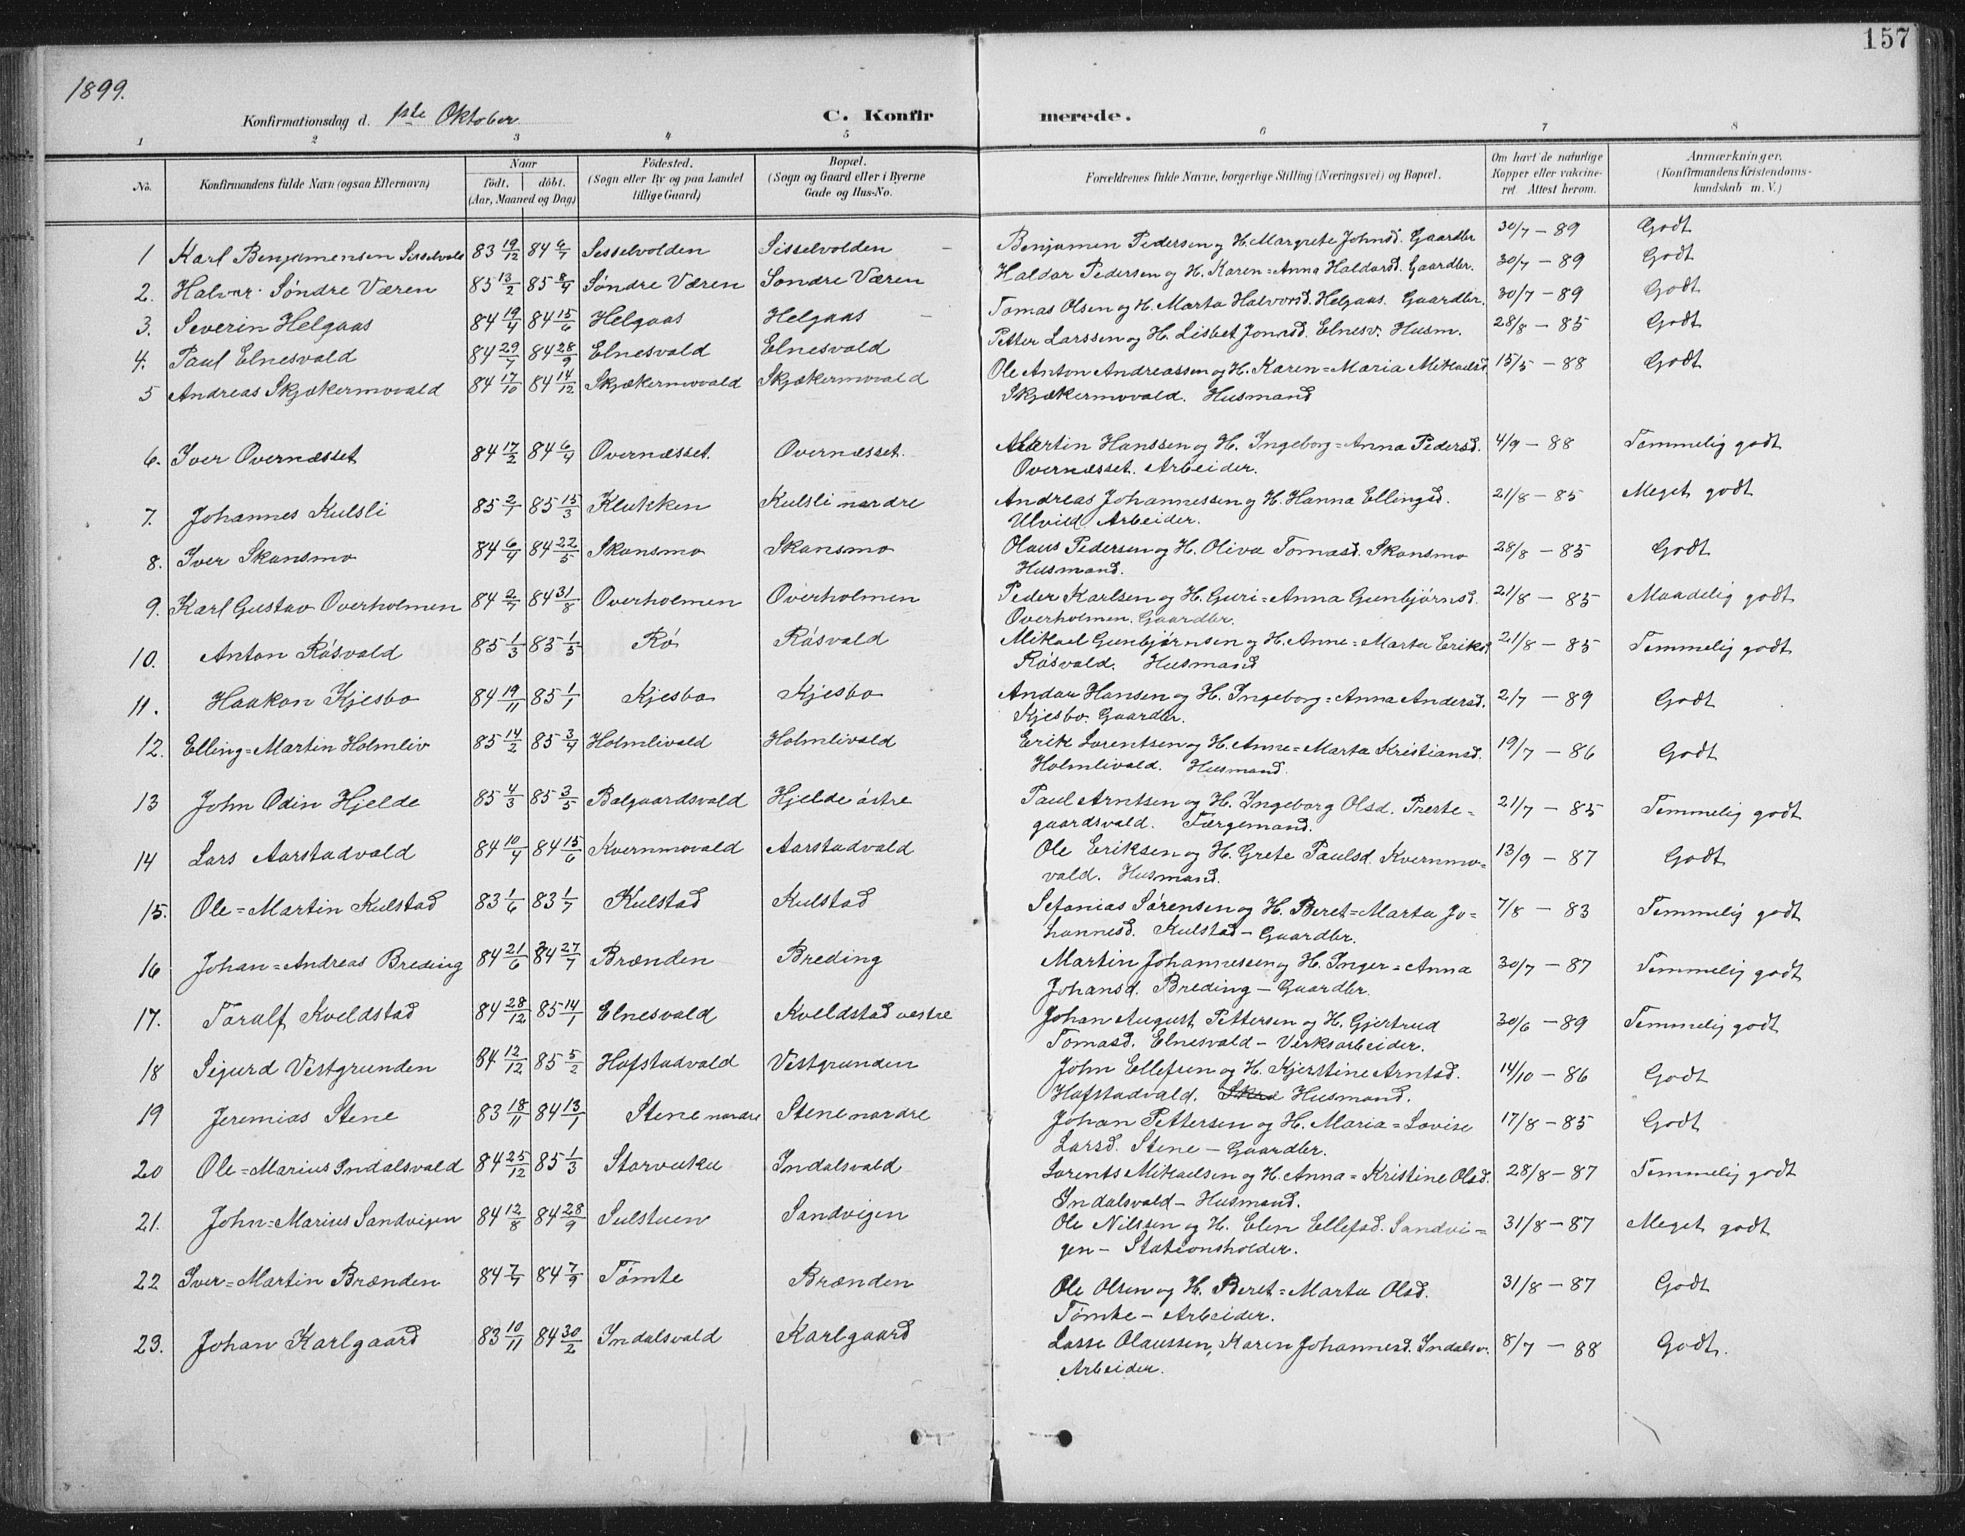 157
1899.
Konfirmationsdag d. 1ste Oktober. C. Konfirmerede.
1 2 3 4 5 6 7 8
No. Konfirmandens fulde Navn (ogsaa Efternavn) Naar født, døbt. (Aar, Maaned og Dag) Fødested. (Sogn eller By og paa Landet tillige Gaard) Bopæl. (Sogn og Gaard eller i Byerne Gade og Hus-No. Forældrenes fulde Navne, borgerlige Stilling (Næringsvei) og Bopæl. Om havt de naturlige Kopper eller vakcineret. Attest herom. Anmærkninger. (Konfirmandens Kristendomskundskab m. V.)
1 Karl Benjamensen Sisselvold 83 19/12 84 6/1 Sesselvolden Sisselvolden – Benjamen Pedersen og H. Margrete Johnsd. Gaardbr 30/7 – 89 Godt
2. Halvar Søndre Væren 85 13/2 85 8/4 Søndre Væren Søndre Væren Haldor Pedersen og H. Karen=Anna Haldorsd. Gaardbr. 30/7 – 89 Godt
3. Severin Helgaas 84 19/4 84 15/6 Helgaas Helgaas – Tomas Olsen og H. Marta Halvorsd. Helgaas. Gaardbr. 30/7 – 89 Godt
4. Paul Elnesvald 84 29/7 84 28/9 Elnesvald Elnesvald Petter Larssen og H. Lisbet Jonasd. Elnesv. Husm. 28/8 – 85 Godt
5 Andreas Skjækermovald 84 17/10 84 14/12 Skjækermovald Skjækermovald Ole Anton Andreassen og H. Karen=Maria Mikaelsd 15/5 – 88 Godt
Skjækermovald. Husmand
6. Iver Overnæsset 84 17/2 84 6/4 Overnæsset. Overnæsset. Martin Hanssen og H. Ingeborg=Anna Pedersd. 4/9 – 88 Temmelig godt
Overnæsset. Arbeider.
7. Johannes Kulsli 85 2/1 85 15/3 Klukken Kulsli nordre Andreas Johannessen og H. Hanna Ellingsd. 21/8 – 85 Meget godt
Ulvild. Arbeider.
8. Iver Skansmo 84 6/4 84 22/5 Skansmo Skansmo Olaus Pedersen og H. Oliva Tomasd. Skansmo 28/8 – 85 Godt
Husmand.
9. Karl Gustav Overholmen 84 2/7 84 31/8 Overholmen Overholmen Peder Karlsen og H. Guri=Anna Gunbjørnsd. 21/8 – 85 Maadelig godt
Overholmen. Gaardbr.
10. Anton Røsvald 85 1/3 85 1/5 Rø Røsvald Mikael Gunbjørnsen og H. Anne=Marta Eriksd 21/8 – 85 Temmelig godt
Røsvald. Husmand
11. Haakon Kjesbo 84 19/11 85 1/1 Kjesbo Kjesbo Andor Hansen og H. Ingeborg=Anna Andersd. 2/7 – 89 Godt
Kjesbo. Gaardbr.
12. Elling=Martin Holmliv 85 14/2 85 3/4 Holmlivald Holmlivald Erik Lorentsen og H. Anne=Marta Kristiansd. 19/7 – 86 Godt
Holmlivald. Husmand.
13 John Odin Hjelde 85 4/3 85 3/5 Balgaardsvald Hjelde østre Paul Arntsen og H. Ingeborg Olsd. Preste= 21/7 – 85 Temmelig godt
gaardsvald. Færgemand.
14 Lars Aarstadvald 84 10/4 84 15/6 Kvernmovald Aarstadvald Ole Eriksen og H. Grete Paulsd. Kvernmo= 13/9 – 87 Godt
vald. Husmand.
15. Ole=Martin Kulstad 83 1/6 83 1/7 Kulstad Kulstad Sefanias Sørensen og H. Beret=Marta Jo= 7/8 – 83 Temmelig godt
hannesd. Kulstad – Gaardbr.
16 Johan=Andreas Breding 84 21/6 84 27/7 Brænden Breding Martin Johannessen og H. Inger=Anna 30/7 – 87 Temmelig godt
Johansd. Breding – Gaardbr.
17. Toralf Kveldstad 84 28/12 85 14/1 Elnesvald Kveldstad vestre Johan August Pettersen og H. Gjertrud 30/6 – 89 Temmelig godt
Tomasd. Elnesvald – Verksarbeider.
18 Sigurd Vestgrunden 84 12/12 85 5/2 Hofstadvald Vestgrunden John Ellefsen og H. Kjerstine Arntsd. 14/10 – 86 Godt
Hofstadvald. Husmand.
19 Jeremias Stene 83 18/11 84 13/1 Stene nordre Stene nordre Johan Pettersen og H. Maria=Lovise 17/8 – 85 Godt
Larsd. Stene – Gaardbr.
20 Ole=Marius Indalsvald 84 25/12 85 1/3 Storvuku Indalsvald Lorents Mikaelsen og H. Anna=Kristine Olsd. 28/8 – 87 Temmelig godt
Indalsvald – Husmand.
21. John=Marius Sandvigen 84 12/8 84 28/9 Sulstuen Sandvigen Ole Nilssen og H. Elen Ellefsd. Sandvi= 31/8 – 87 Meget godt
gen – Stationsholder.
22 Iver=Martin Brænden 84 7/7 84 7/9 Tømte Brænden Ole Olsen og H. Beret=Marta Olsd. 31/8 – 87 Godt
Tømte – Arbeider.
23. Johan Karlgaard 83 10/11 84 30/2 Indalsvald Karlgaard Lasse Olaussen, Karen Johannesd. Indalsv. 8/7 – 88 Godt.
Arbeider.